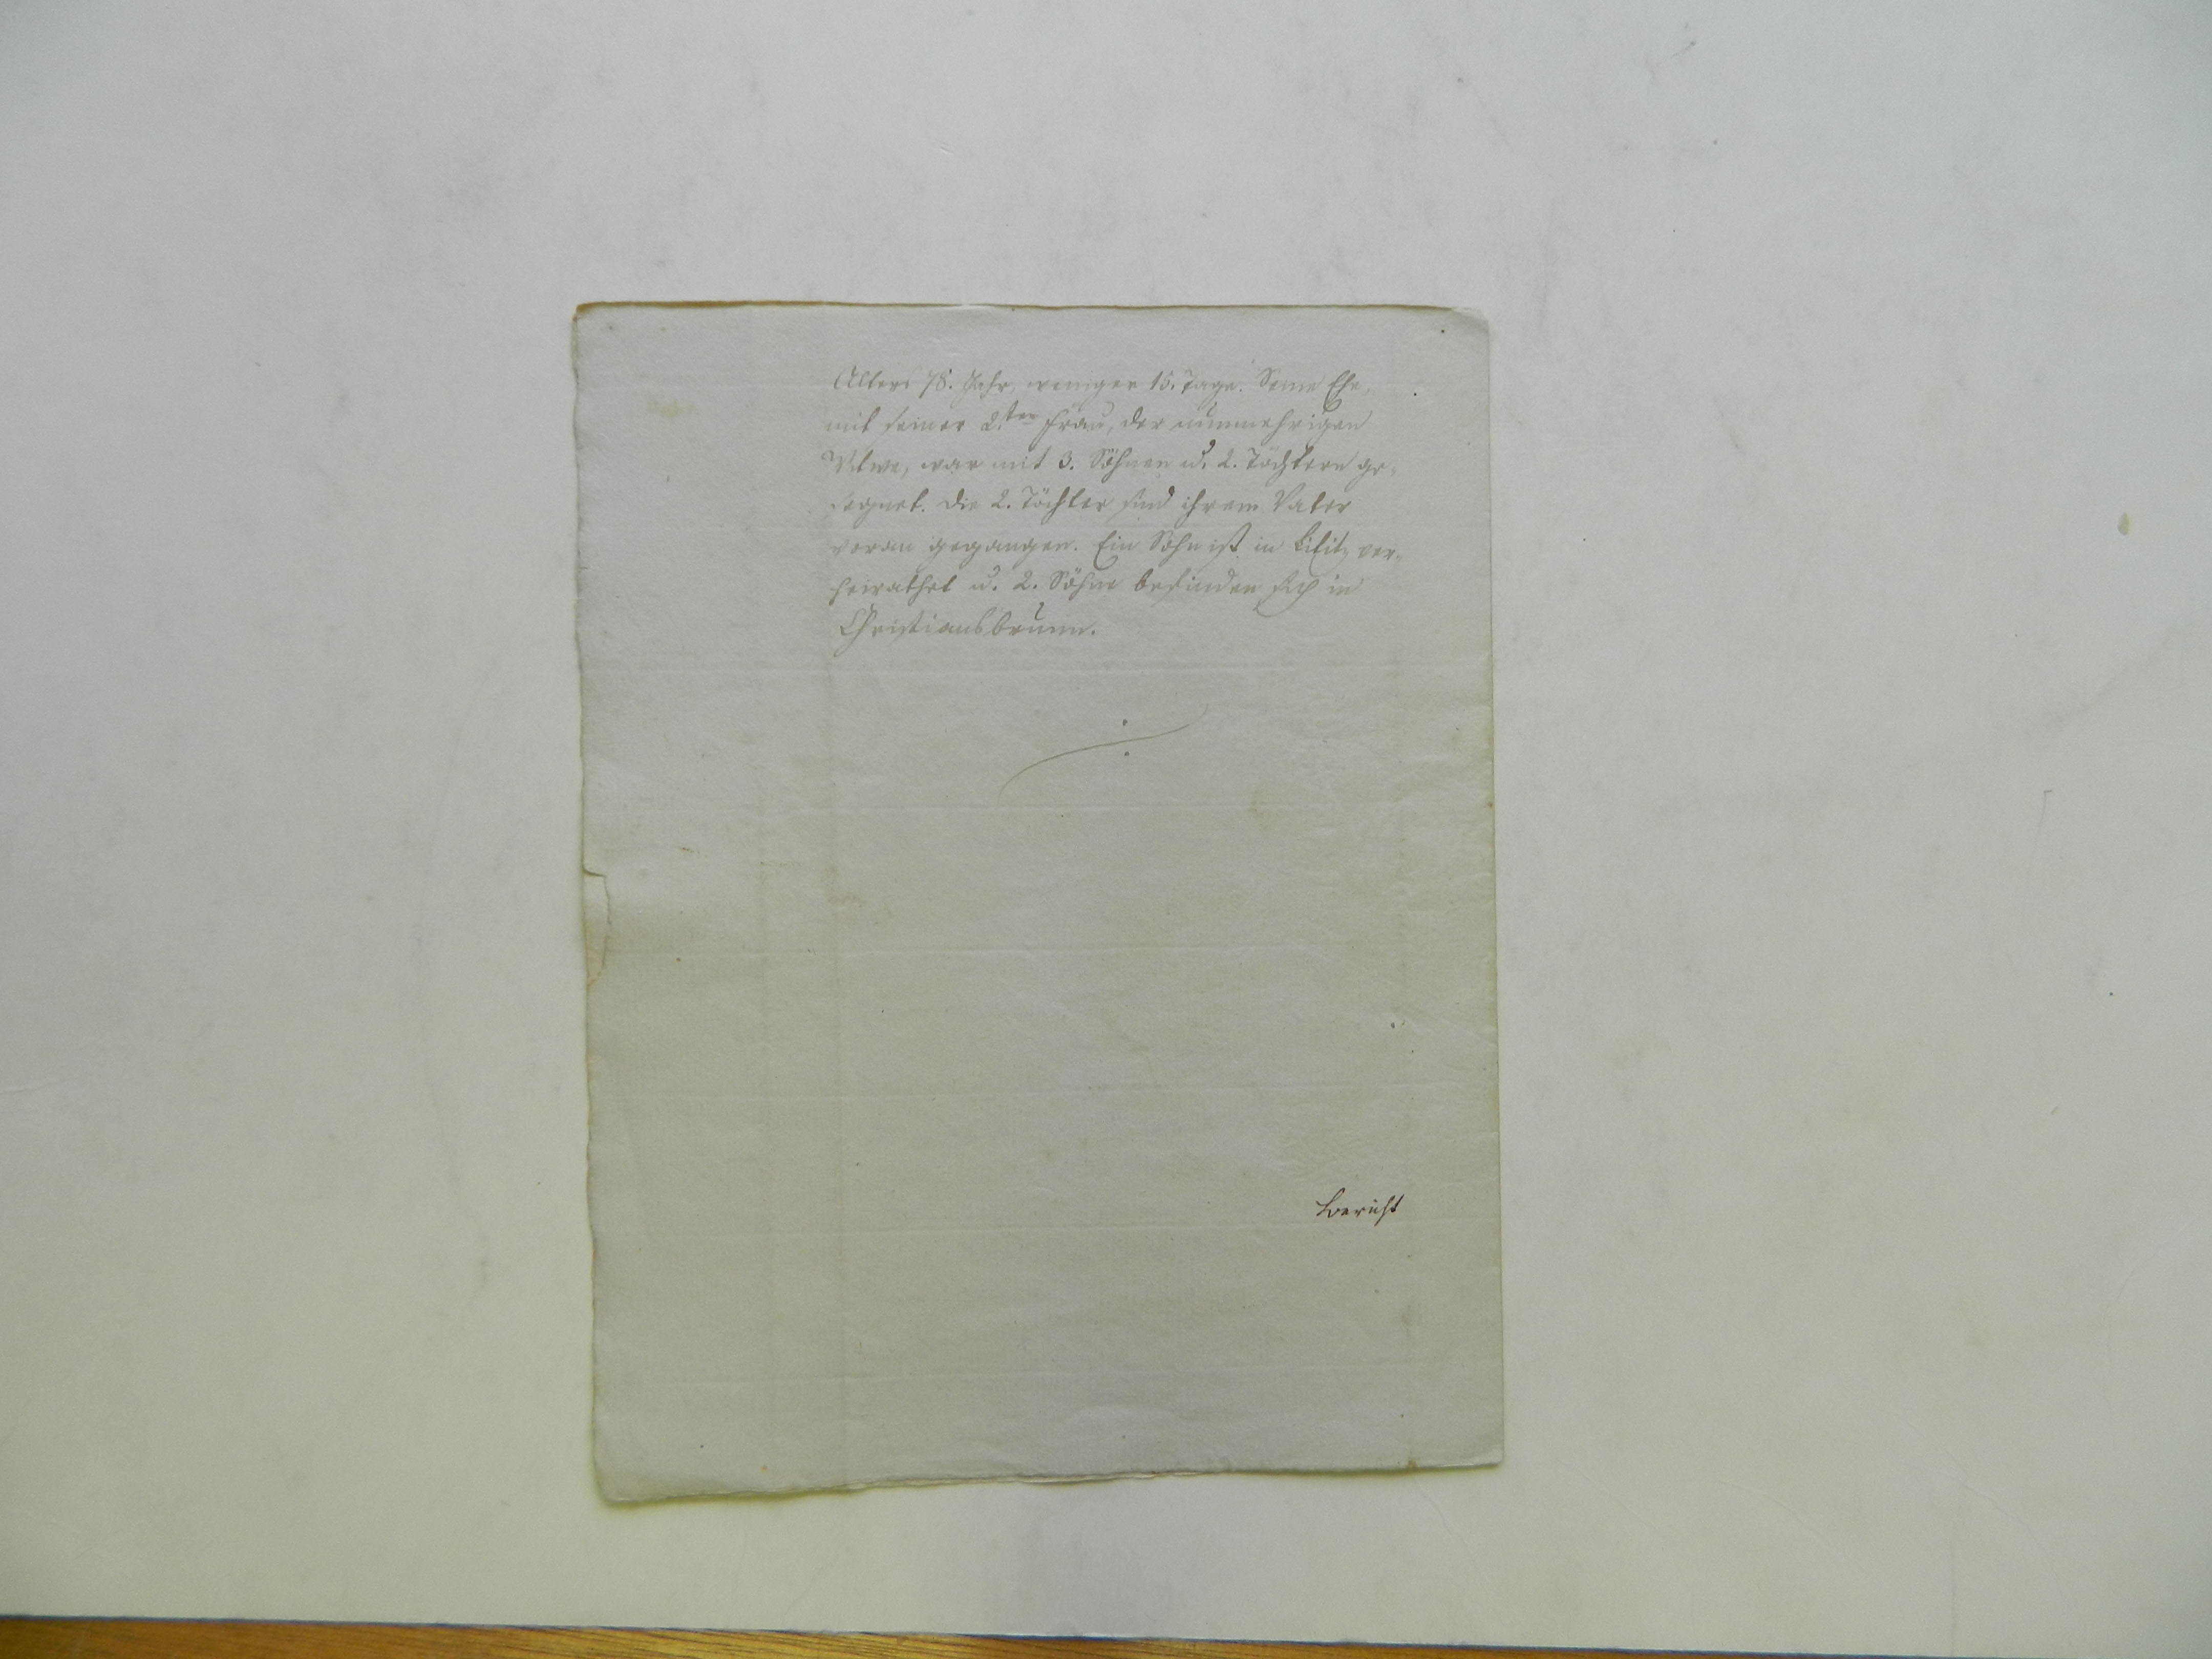 Alters 78. Jahr, weniger 15. Tage. Seine Ehe,
mit seiner 2.ten Frau, der nunmehrigen
Witwe, war mit 3. Söhnen u. 2. Töchtern ge-
segnet. Die 2. Töchter sind ihrem Vater
voran gegangen. Ein Sohn ist in Lititz ver-
heirathet u. 2. Söhne befinden sich in
Christiansbrunn.
Bericht